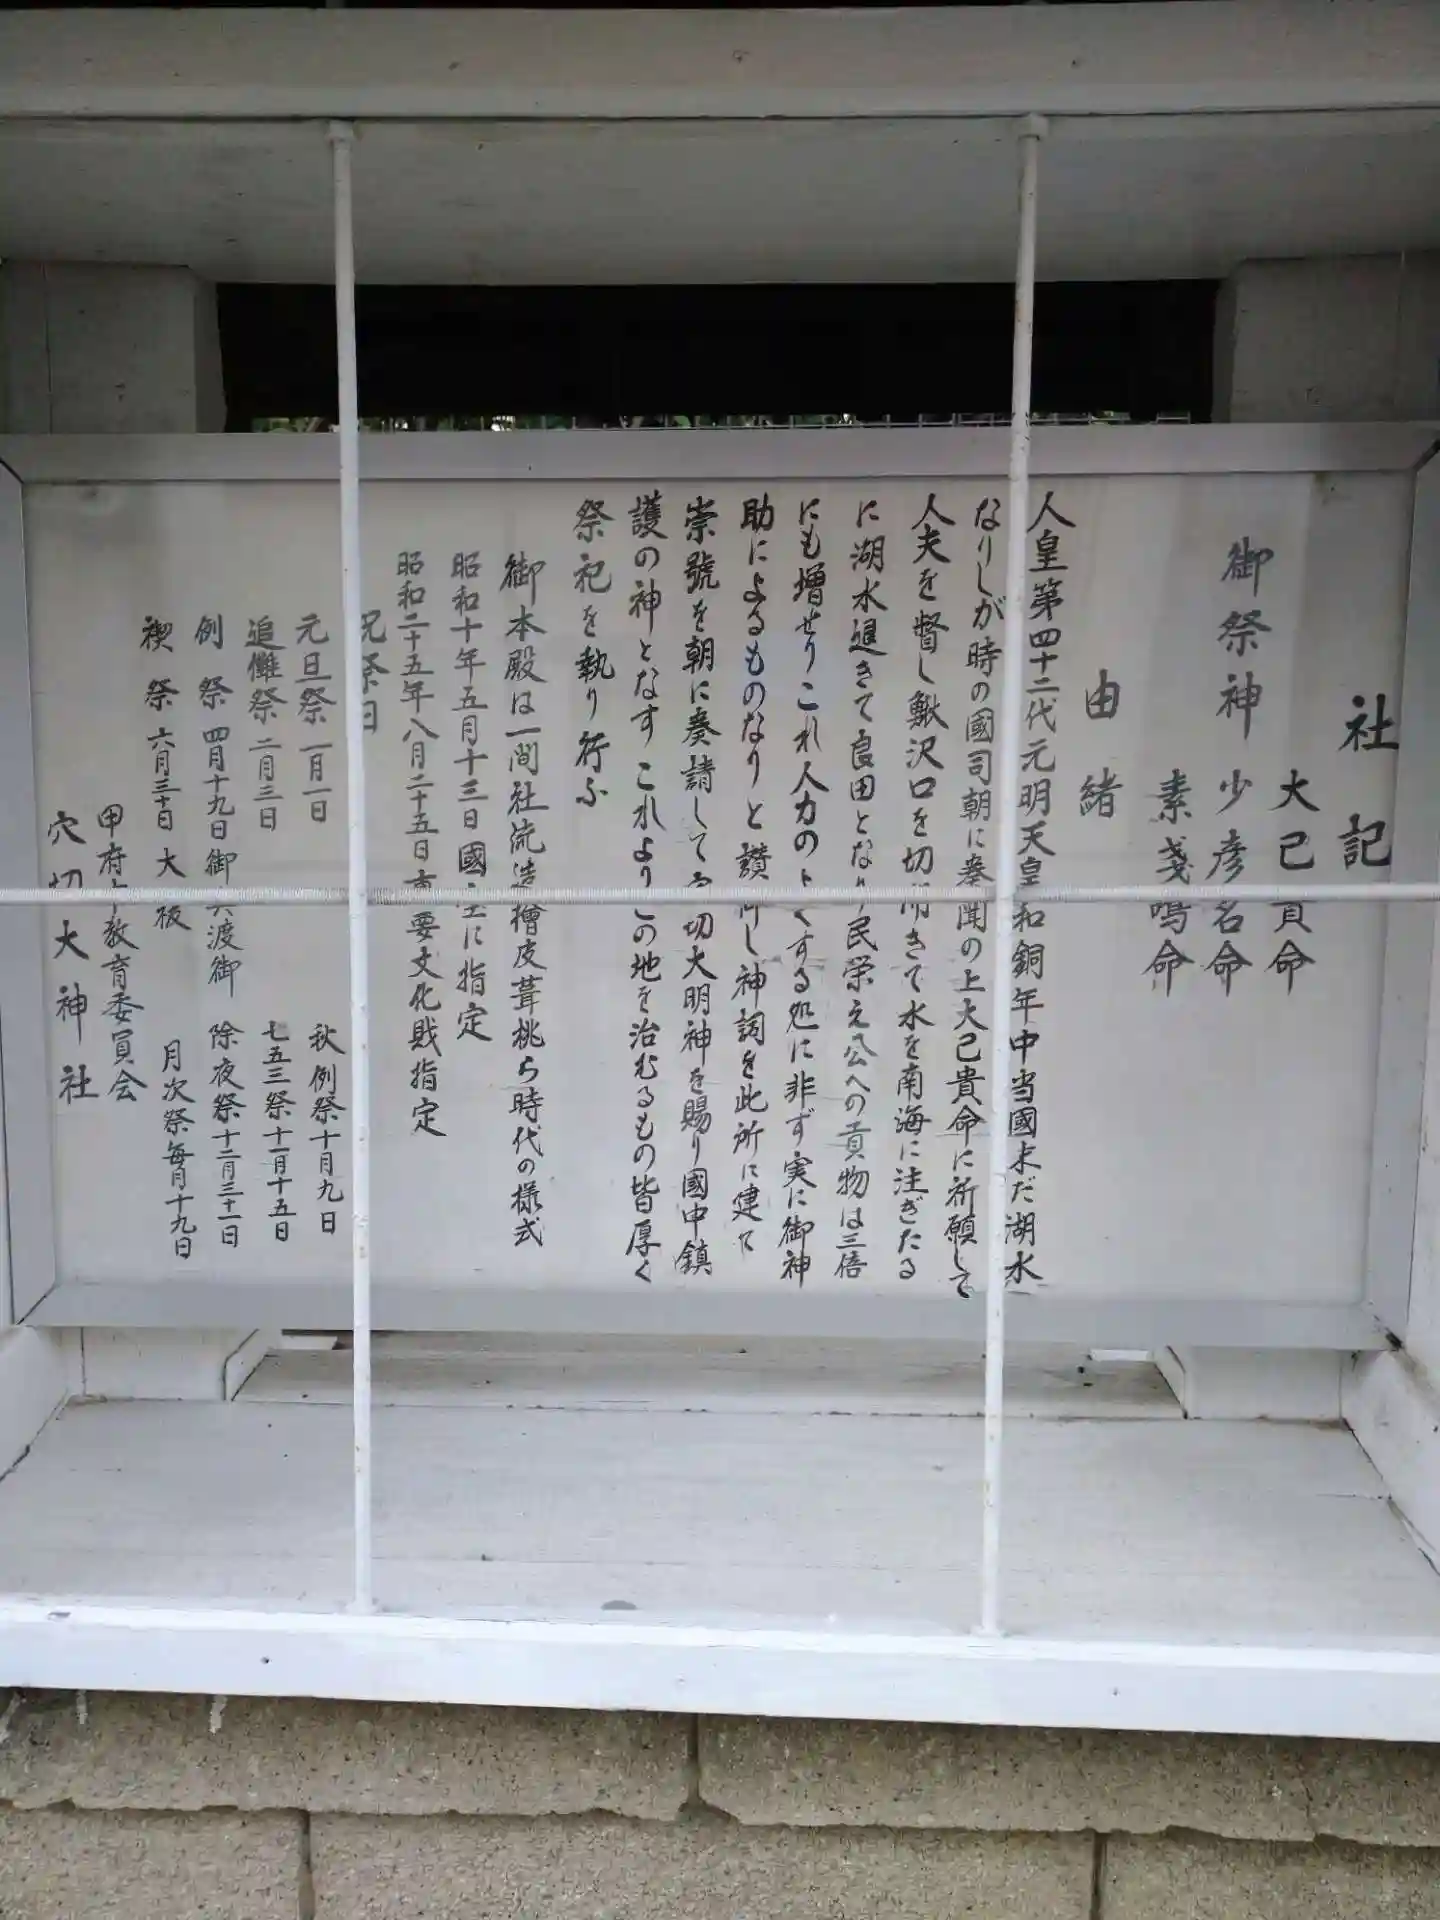 社記
大己貴命
御祭神 少彦名命
素戔嗚命
由緒
人皇第四十二代元明天皇和銅年中当國未だ湖水
なりしが時の國司朝に奏聞の上大己貴命に祈願して
人夫を督し鰍沢口を切開きて水を南海に注ぎたる
に湖水退きて良田となり民栄え公への貢物は三倍
にも増せりこれ人力のよくする処に非ず実に御神
助によるものなりと讃仰し神詞を此所に建て
崇號を朝に奏請して 切大明神を賜り國中鎮
護の神となす これより この地を治むるもの皆厚く
祭祀を執り行ふ
御本殿は一間社流造檜皮葺桃ら時代の様式
昭和十年五月十三日國宝に指定
昭和二十五年八月二十五日重要文化財指定
祭日
元旦祭 一月一日 秋例祭十月九日
追儺祭 二月三日 七五三祭十一月十五日
例祭 四月十九日御 渡御 除夜祭十二月三十一日
禊祭 六月三十日 大祓 月次祭毎月十九日
甲府市教育委員会
穴切大神社